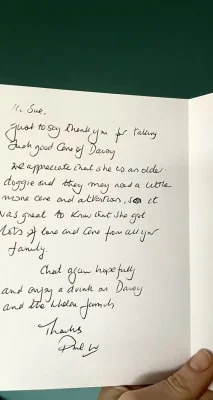 Hi Sue,
Just to say thank you for taking
such good care of Daisy
We appreciate that she is an older
doggie and they may need a little
more care and attention, so it
was great to know that she got
lots of love and care from all your
family.
Chat again hopefully
and enjoy a drink on Daisy
and the Whelan family
Thanks